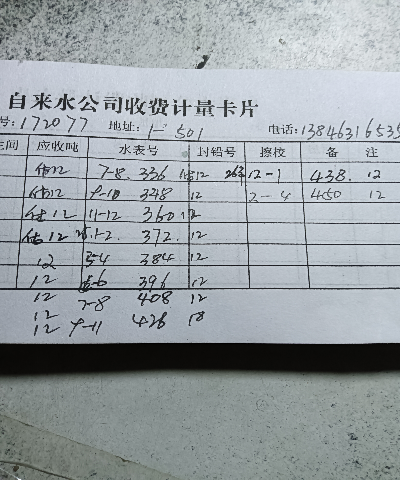 自来水公司收费计量卡片
号:172077 地址:1-501 电话:13846316535
间 应收吨 水表号 封铅号 擦校 备 注
估12 7-8. 336 12 263 12-1 438. 12
估12 9-10 348 12 2-4 450 12
估12 11-12 360 12
估12 1-2. 372. 12
12 3-4 384 12
12 5-6 396 12
12 7-8 408 12
12 9-11 426 18
12